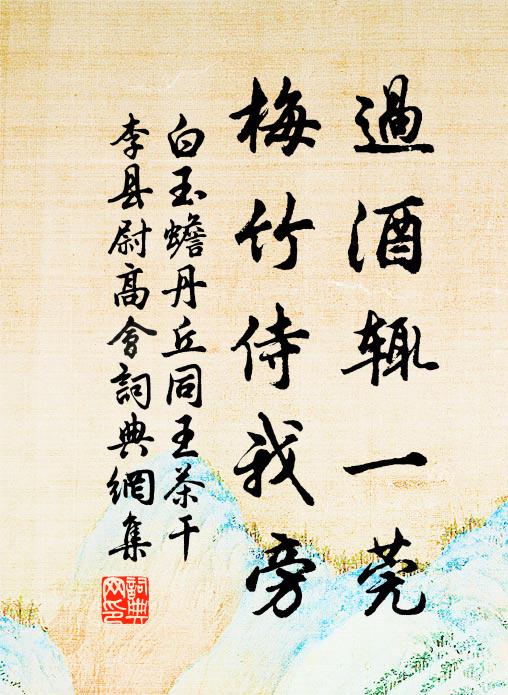 過酒辄一莞
梅竹侍我旁
白玉蟾丹丘同王茶干
李县尉高會詞典網集
詞典